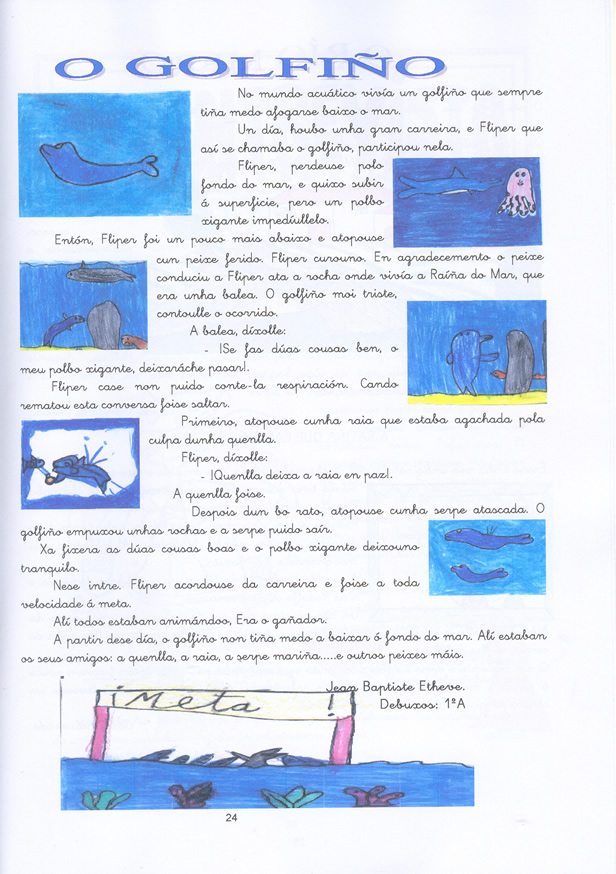 O GOLFIÑO
No mundo acuático vivía un golfiño que sempre
tiña medo afogarse baixo o mar.
Un día, houbo unha gran carreira, e Fliper que
así se chamaba o golfiño, participou nela.
Fliper, perdeuse polo
fondo do mar, e quixo subir
á superficie, pero un polbo
xigante impedíullelo.
Entón, Fliper foi un pouco mais abaixo e atopouse
cun peixe ferido. Fliper curouno. En agradecemento o peixe
conduciu a Fliper ata a rocha onde vivía a Raíña do Mar, que
era unha balea. O golfiño moi triste,
contoulle o ocorrido.
A balea, díxolle:
- ¡Se fas dúas cousas ben, o
meu polbo xigante, deixaráche pasar!.
Fliper case non puido conte-la respiración. Cando
rematou esta conversa foise saltar.
Primeiro, atopouse cunha raia que estaba agachada pola
culpa dunha quenlla.
Fliper, díxolle:
- ¡Quenlla deixa a raia en paz!.
A quenlla foise.
Despois dun bo rato, atopouse cunha serpe atascada. O
golfiño empuxou unhas rochas e a serpe puido saír.
Xa fixera as dúas cousas boas e o polbo xigante deixouno
tranquilo.
Nese intre. Fliper acordouse da carreira e foise a toda
velocidade á meta.
Alí todos estaban animándoo, Era o gañador.
A partir dese día, o golfiño non tiña medo a baixar ó fondo do mar. Alí estaban
os seus amigos: a quenlla, a raia, a serpe mariña.....e outros peixes máis.
Jean Baptiste Etheve.
Debuxos: 1ºA
¡Meta!
24